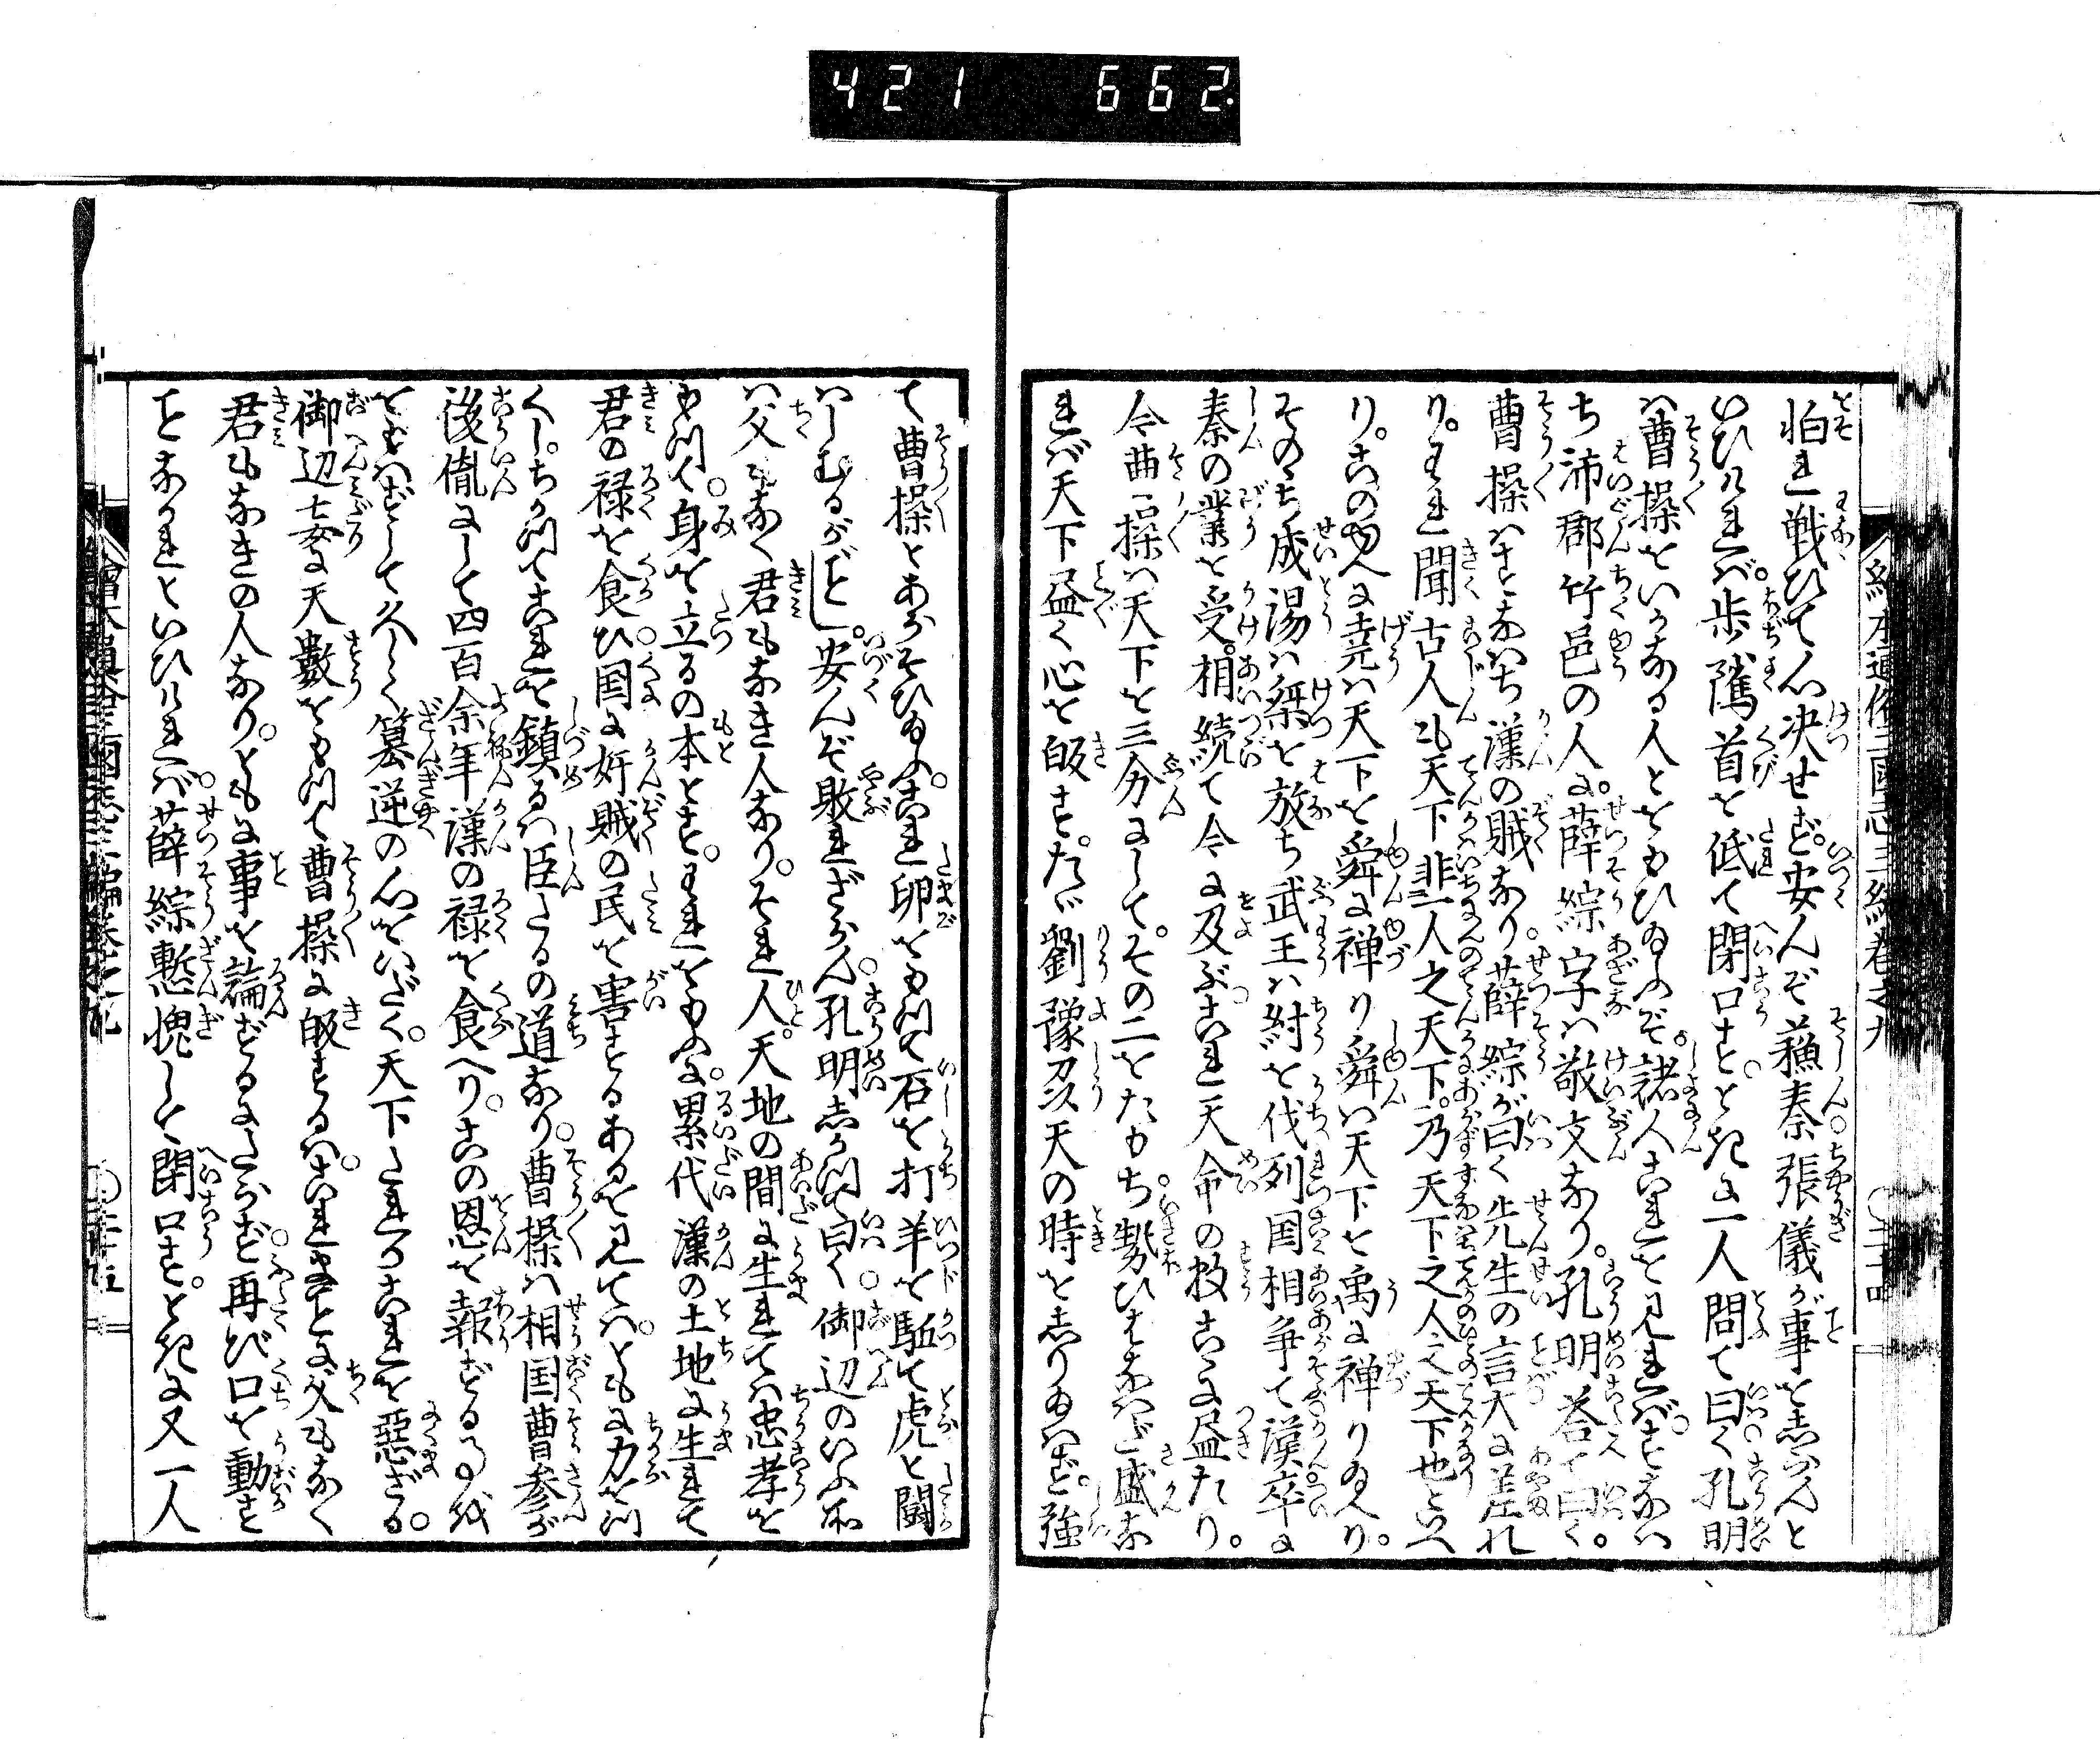 421 662
絵本通俗三國志三編巻之九
怕れ戦ひて心决せず。安んぞ蘓秦張儀が事をしらんと
いひければ。歩隲首を低て閉口す。ときに一人問て曰く孔明
は曹操をいかなる人とをもひ給ふぞ。諸人これを見れば。すなは
ち沛郡竹邑の人に。薛綜字は敬文なり。孔明答て曰く。
曹操はすなはち漢の賊なり。薛綜が曰く先生の言大に差れ
り。われ聞古人も天下非一人之天下。乃天下之人之天下也といへ
り。このゆへに堯は天下を舜に禅り舜は天下を禹に禅り給へり。
そのゝち成湯は桀を放ち武王は紂を伐列国相争て漢卒に
秦の業を受。相続て今に及ぶ。これ天命の数こゝに尽たり。
今曹操は天下を三分にして。その二をたもち。勢ひすなはど盛な
れば天下尽く心を皈す。たゞ劉豫州天の時をしり給はず。強
て曹操とあらそひ給ふ。これ卵をもつて石を打羊を駈て虎と闘
はしむるがごとし。安んぞ敗れざらん。孔明しかつて曰く。御辺のいふ所
は父もなく君もなき人なり。それ人。天地の間に生れては忠孝を
もつて。身を立るの本とす。われをもふに。累代漢の土地に生れて
君の禄を食ひ。国に奸賊の民を害するあるを見ては。ともに力をつ
くし。ちかつてこれを鎮るは臣たるの道なり。曹操は相国曹参が
後胤にして四百余年漢の禄を食へり。この恩を報ずる事を
をもはずして久しく簒逆の心をいだく。天下たれかこれを惡ざる。
御辺妄に天數をもつて曹操に皈するは。これまことに父もなく
君もなきの人なり。ともに事を論ずるにたらず。再び口を動す
ことなかれといひければ。薛綜慙愧して閉口す。ときに又一人